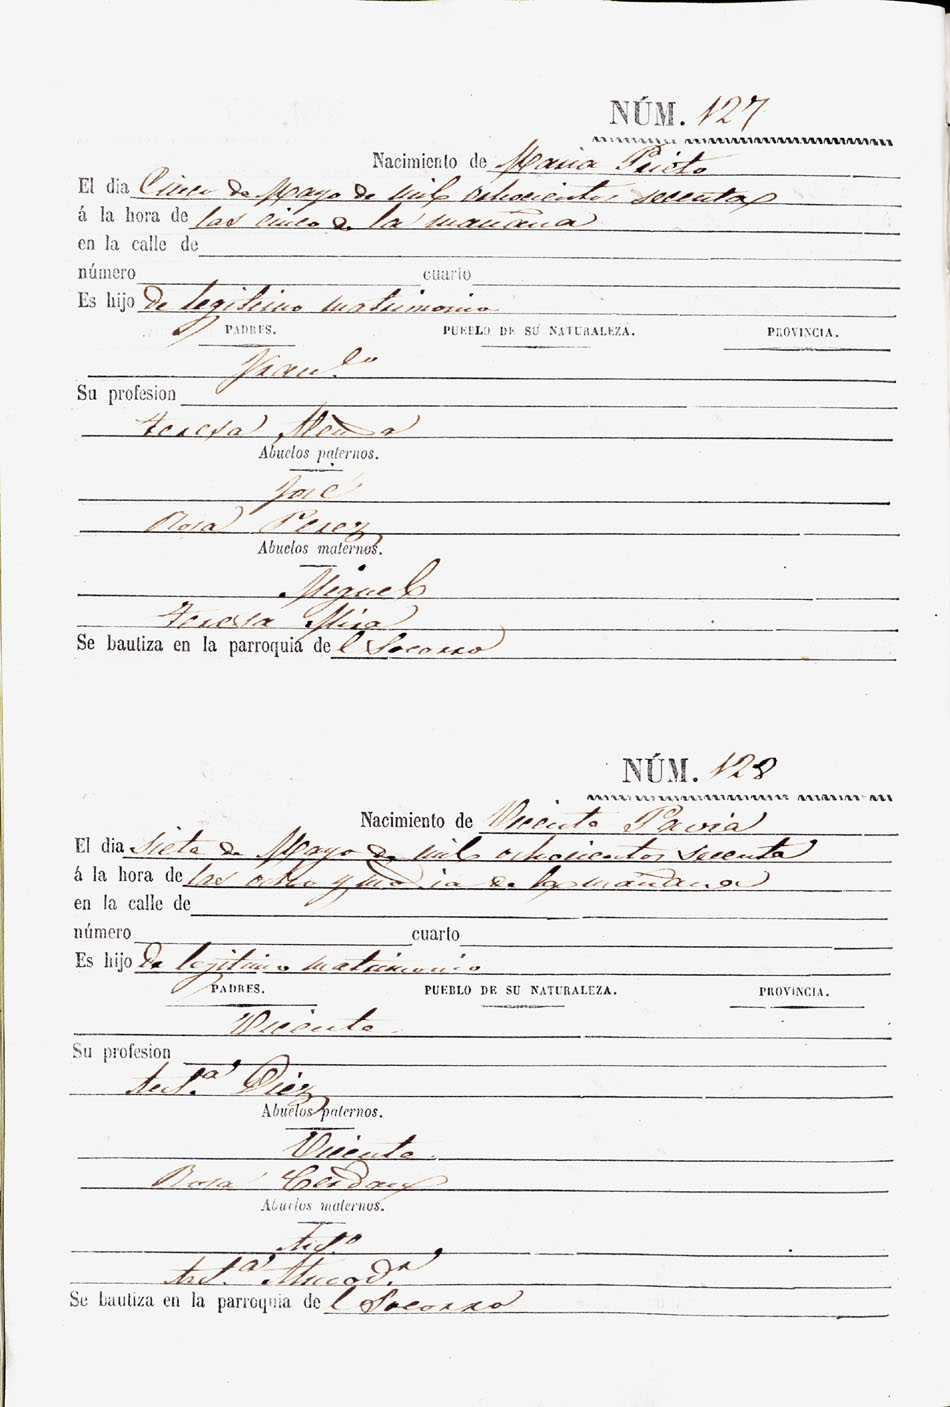 NÚM. 127
Nacimiento de Maria Prieto
El dia Cinco de Mayo de mil ochocientos secenta
á la hora de las cinco de la mañana
en la calle de
número cuarto
Es hijo de legitimo matrimonio
PADRES. PUEBLO DE SU NATURALEZA. PROVINCIA.
Fran.co
Su profesion
Teresa
Abuelos paternos.
José
Rosa Perez
Abuelos maternos.
Miguel
Teresa Mira
Se bautiza en la parroquia de l Socorro
NÚM. 128
Nacimiento de Vicente Pavia
El dia siete de Mayo de mil ochocientos secenta
á la hora de las ocho y media de la mañana
en la calle de
número cuarto
Es hijo de legitimo matrimonio
PADRES. PUEBLO DE SU NATURALEZA. PROVINCIA.
Vicente
Su profesion
Ant.a Diez
Abuelos paternos.
Vicente
Rosa Cerdan
Abuelos maternos.
Ant.o
Ant.a
Se bautiza en la parroquia de l Socorro